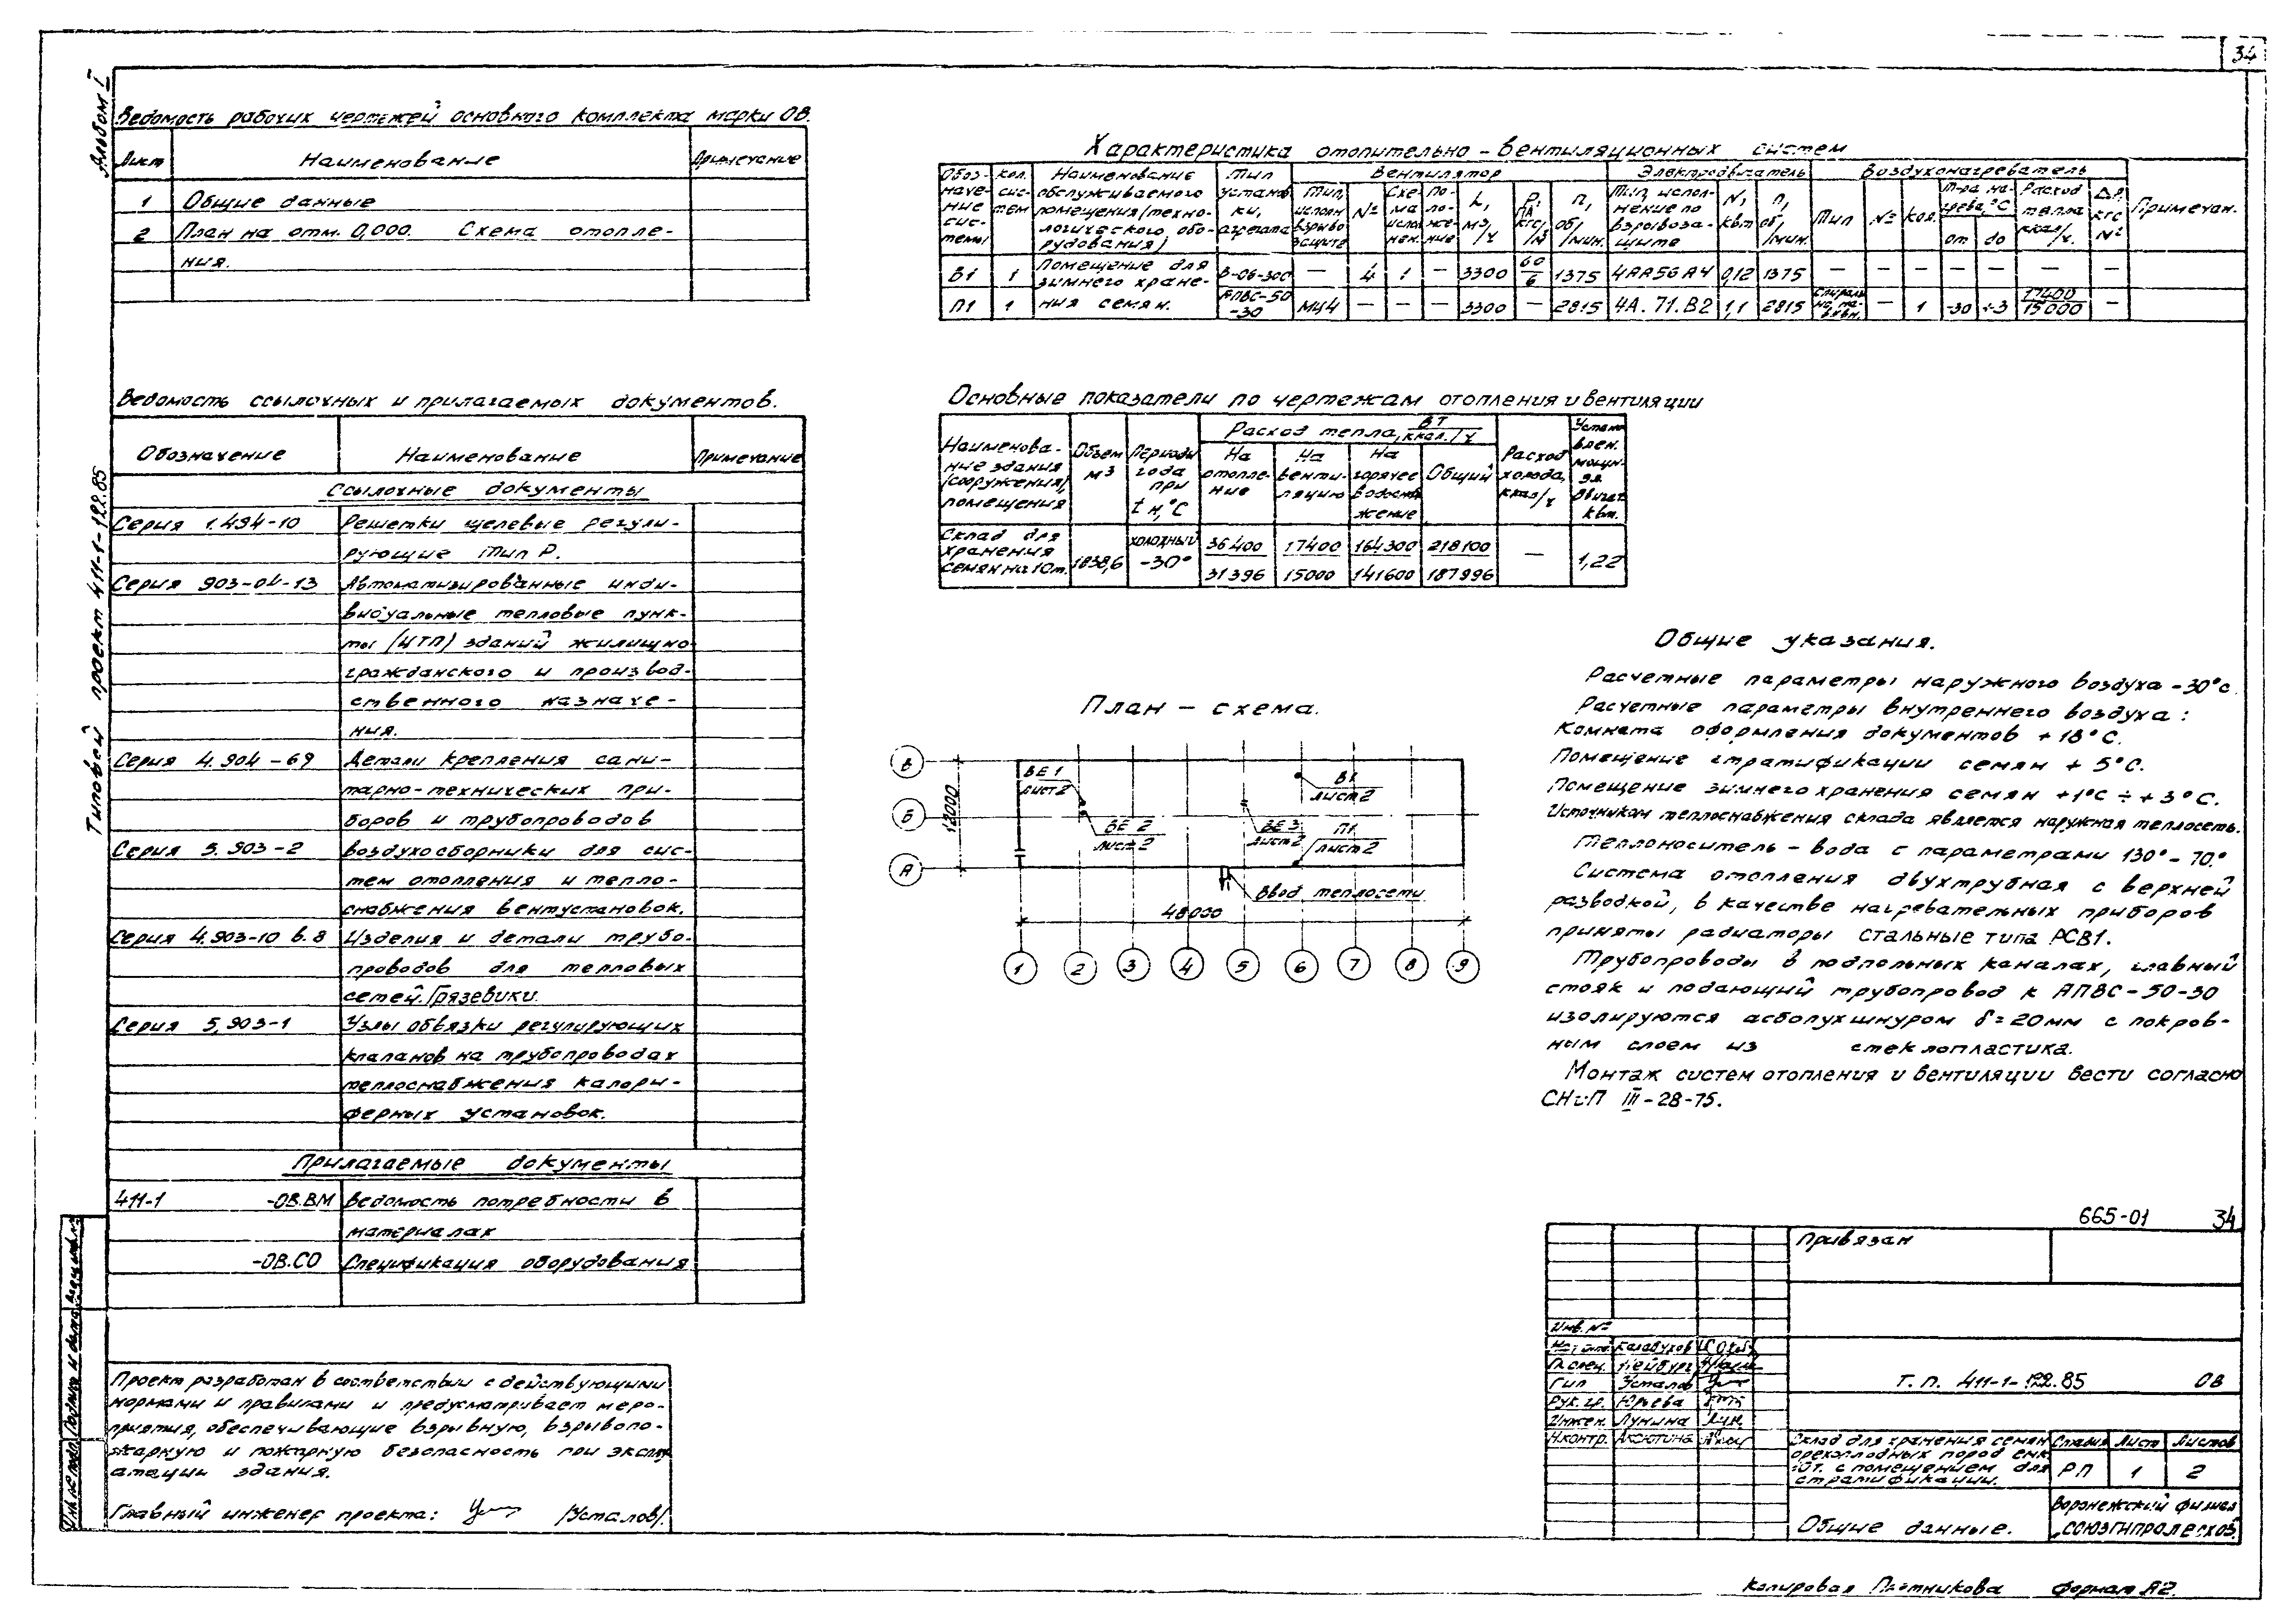 34
Альбом I
Типовой проект 411-1-122.85
Ведомость рабочих чертежей основного комплекта марки ОВ.
Лист Наименование Примечание
1 Общие данные
2 План на отм. 0,000. Схема отопле-
ния.
Ведомость ссылочных и прилагаемых документов.
Обозначение Наименование Примечание
Ссылочные документы
Серия 1.494-10 Решетки щелевые регули-
рующие тип Р.
Серия 903-04-13 Автоматизированные инди-
видуальные тепловые пунк-
ты (ИТП) зданий жилищно
гражданского и производ-
ственного назначе-
ния.
Серия 4.904-69 Детали крепления сани-
тарно-технических при-
боров и трубопроводов
Серия 5.903-2 Воздухосборники для сис-
тем отопления и тепло-
снабжения вентустановок.
Серия 4.903-10 в.8 Изделия и детали трубо-
проводов для тепловых
сетей. Грязевики.
Серия 5.903-1 Узлы обвязки регулирующих
клапанов на трубопроводах
теплоснабжения калори-
ферных установок.
Прилагаемые документы
411-1 -ОВ.ВМ Ведомость потребности в
материалах
-ОВ.СО Спецификация оборудования
Проект разработан в соответствии с действующими
нормами и правилами и предусматривает меро-
приятия, обеспечивающие взрывную, взрывопо-
жарную и пожарную безопасность при эксплу
атации здания.
Главный инженер проекта: /Усталов/.
Характеристика отопительно-вентиляционных систем
Обоз-
наче-
ние
сис-
темы
Кол.
сис-
тем
Наименование
обслуживаемого
помещения (техно-
логического обо-
рудования)
Тип
установ
ки,
агрегата
Вентилятор
Тип,
исполн
взрыво
защите
№
Схе
ма
испол
нен.
По-
ло-
же-
ние
L,
м3/ч
Р,
ПА
кгс/м2
n,
об/мин.
Электродвигатель
Тип, испол-
нение по
взрывоза-
щите
N,
квт
n,
об/мин.
Воздухонагреватель
Тип № кол.
Т-ра на-
грева, °С
от до
Расход
тепла
ккал/ч.
ΔР
кгс
м2
Примечан.
В1 1 Помещение для
зимнего хране-
ния семян.
В-06-300 — 4 1 — 3300 60/6 1375 4АА56А4 0,12 1375 — — — — — — —
П1 1 АПВС-50
-30 МЦ4 — — — 3300 — 2815 4А.71.В2 1,1 2815 — 1 -30 +3 17400/15000 —
Основные показатели по чертежам отопления и вентиляции
Наименова-
ние здания
(сооружения),
помещения
Объем
м3
Периоды
года
при
tн, °С
Расход тепла, ВТ/ккал./ч
На
отопле-
ние
На
венти-
ляцию
На
горячее
водосна
жение
Общий
Расход
холода,
ккал/ч
Устано
влен.
мощн.
эл.
двигат.
квт.
Склад для
хранения
семян на 10т.
1838,6
холодный
-30°
36400 17400 164300 218100
31396 15000 141600 187996
— 1,22
План - схема.
В
Б
А
12000
ВЕ1
лист 2
ВЕ 2
лист 2
ВЕ 3
лист 2
В1
лист 2
П1
лист 2
Ввод теплосети
48000
1 2 3 4 5 6 7 8 9
Общие указания.
Расчетные параметры наружного воздуха -30°с.
Расчетные параметры внутреннего воздуха:
Комната оформления документов +18°С.
Помещение стратификации семян + 5°С.
Помещение зимнего хранения семян +1°С ÷ +3°С.
Источником теплоснабжения склада является наружная теплосеть.
Теплоноситель - вода с параметрами 130°-70.°
Система отопления двухтрубная с верхней
разводкой, в качестве нагревательных приборов
приняты радиаторы стальные типа РСВ1.
Трубопроводы в подпольных каналах, главный
стояк и подающий трубопровод к АПВС-50-30
изолируются асбопухшнуром δ=20мм с покров-
ным слоем из стеклопластика.
Монтаж систем отопления и вентиляции вести согласно
СНиП III-28-75.
665-01 34
Привязан
Инв. №
Гл. спец. Нейбург
Гип Усталов
Рук. гр. Юрьева
Инжен. Лунина
Н.контр. Аксютина
Т. п. 411-1-122.85 ОВ
Склад для хранения семян
орехоплодных пород емк.
10т. с помещением для
стратификации.
Стадия Лист Листов
РП 1 2
Общие данные.
Воронежский филиал
„СОЮЗГИПРОЛЕСХОЗ"
Инв. № подл. Подпись и дата Взам. инв. №
Копировал Плотникова Формат А2.